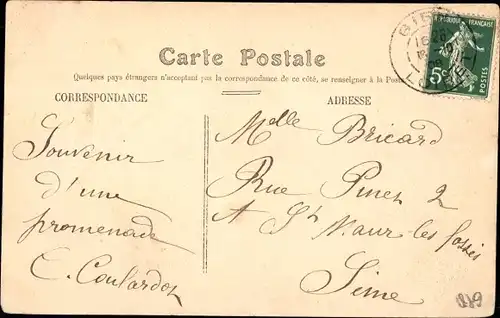 Carte Postale
Quelques pays étrangers n'acceptant pas la correspondance de ce côté, se renseigner à la Poste
CORRESPONDANCE
ADRESSE
Souvenir
d'une
promenade
Melle Bricard
Rue 2
A St Maur-les fossés
Seine
5c POSTES